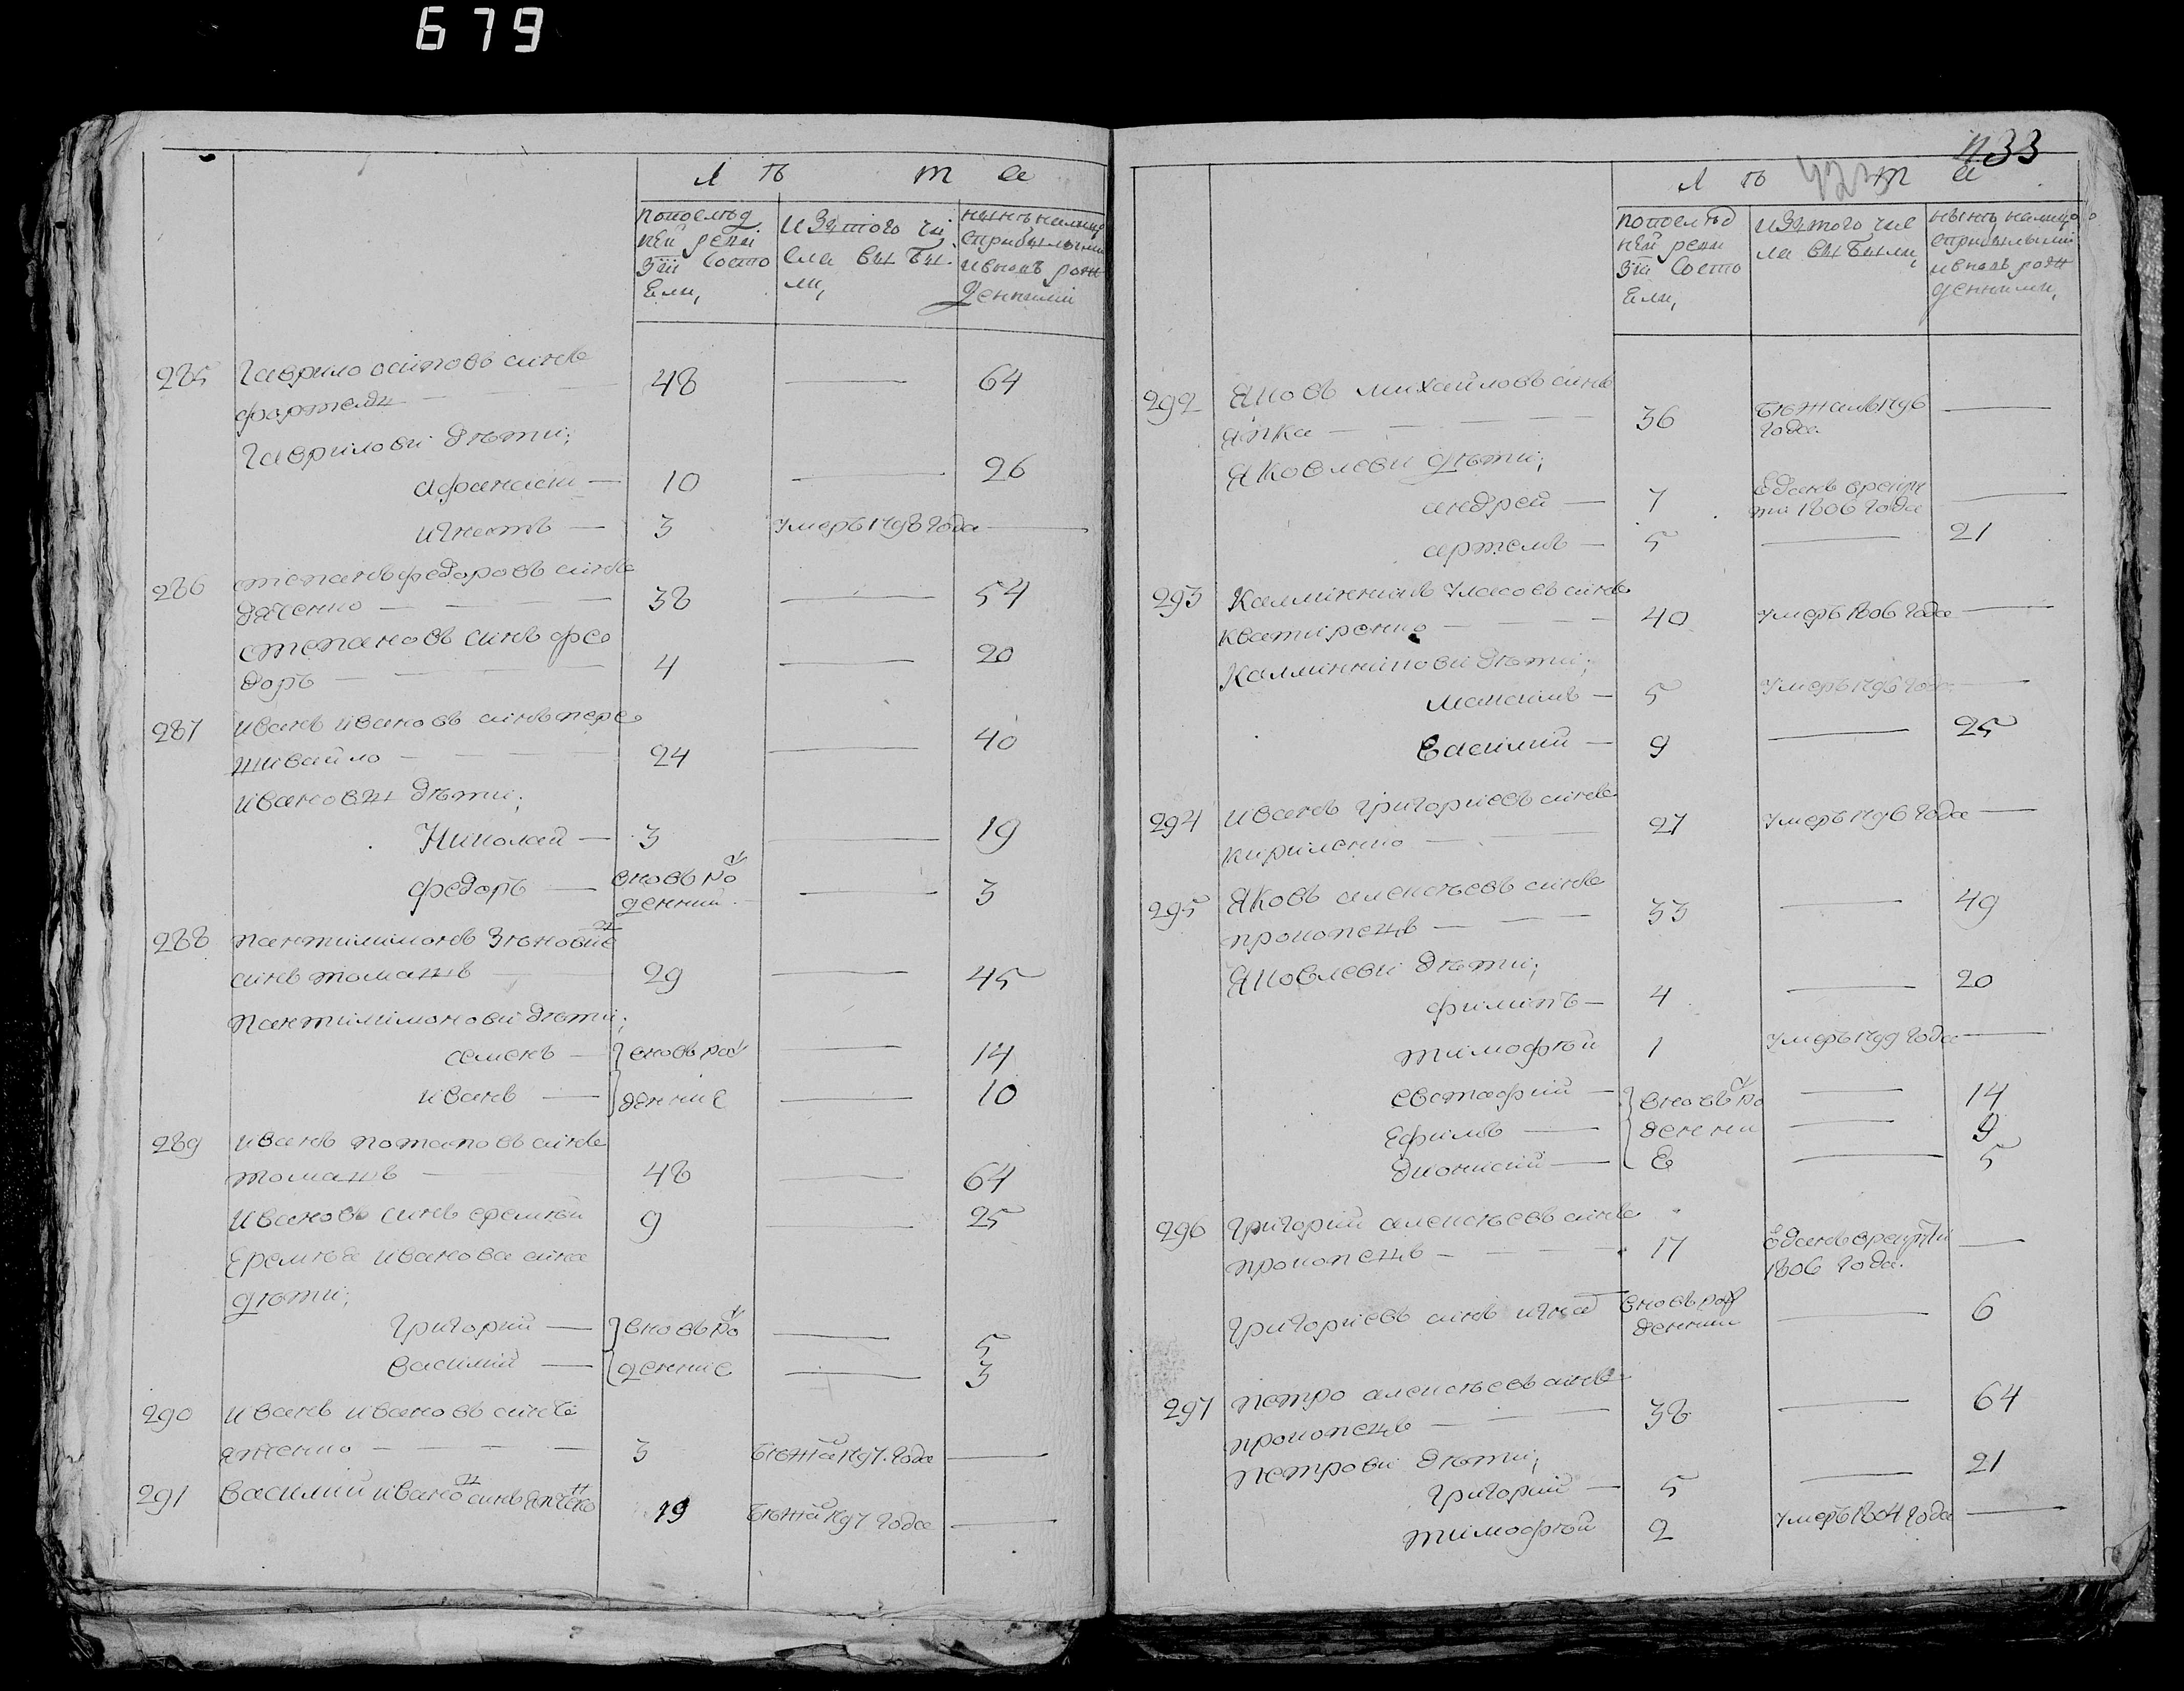 679
Л ѣ т а
попослѣд
ней реви
зіи состо
Ели,
изътого чи
сла выбы
ли,
нынѣ налицо
сприбылыми
ивновь рож
денними
285 Гаврило осиповъ синъ 48 — 64
Гаврилови дѣти;
афанасий — 10 — 26
игнатъ — 3 умеръ 1798 года —
286 степанъ федоровъ синъ
дяченко — 38 — 54
степановъ синъ фео
доръ — 4 — 20
287 иванъ ивановъ синъ пере
живайло — 24 — 40
ивановы дѣти;
Николай — 3 — 19
федоръ — вновь рож
денний — 3
288 пантилимонъ Зѣновие
синъ томашъ 29 — 45
пантилимонови дѣти;
семенъ — вновь рож — 14
иванъ — денние — 10
289 иванъ потаповъ синъ
томашъ 48 — 64
ивановъ синъ еремѣй 9 — 25
Еремѣя иванова сина
дѣти;
григорий — вновь рож — 5
василий — денние — 3
290 иванъ ивановъ синъ
3 бѣжал 1797 года —
291 василий иванов синъ 19 бѣжал 1797 года —
433
Л ѣ т а
попослѣд
ней реви
зіи состо
Ели,
изътого чис
ла выбыли,
нынѣ налицо
сприбылыми
ивновь рож
денними,
292 Яковъ михайловъ синъ
36 бѣжалъ 1796
года —
Яковлеви дѣти;
андрей — 7 Ѿданъ врекру
ти 1806 года —
артемъ — 5 — 21
293 Калинникъ уласовъ синъ
кватиренко — 40 умеръ 1806 года —
Калинникови дѣти;
максимъ — 5 умеръ 1796 года —
Василий — 9 — 25
294 иванъ григориевъ синъ
кириленко — 27 умеръ 1796 года —
295 Яковъ алексѣевъ синъ
прокопецъ — 33 — 49
Яковлеви дѣти;
филипъ — 4 — 20
тимофѣй 1 умеръ 1799 года —
евстафий — вновь рож — 14
Ефимъ — денни — 9
дионисий — Е — 5
296 григорий алексѣевъ синъ
прокопецъ — 17 Ѿданъ врекрути
1806 года. —
григориевъ синъ игнат вновь рож
денний — 6
297 петро алексѣевъ синъ
прокопецъ — 38 — 64
петрови дѣти;
григорий — 5 — 21
тимофѣй 2 умеръ 1804 года —